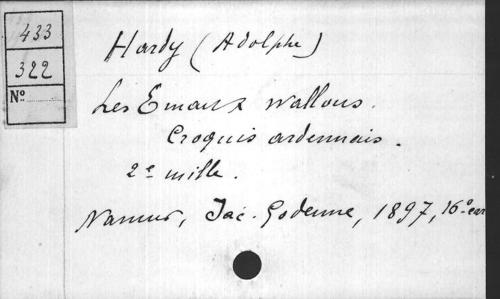 433
322
No
Hardy (Adolphe)
Les Emaux wallons.
Croquis ardennais.
2e mille.
Namur, Jac. Godenne, 1897, 16o